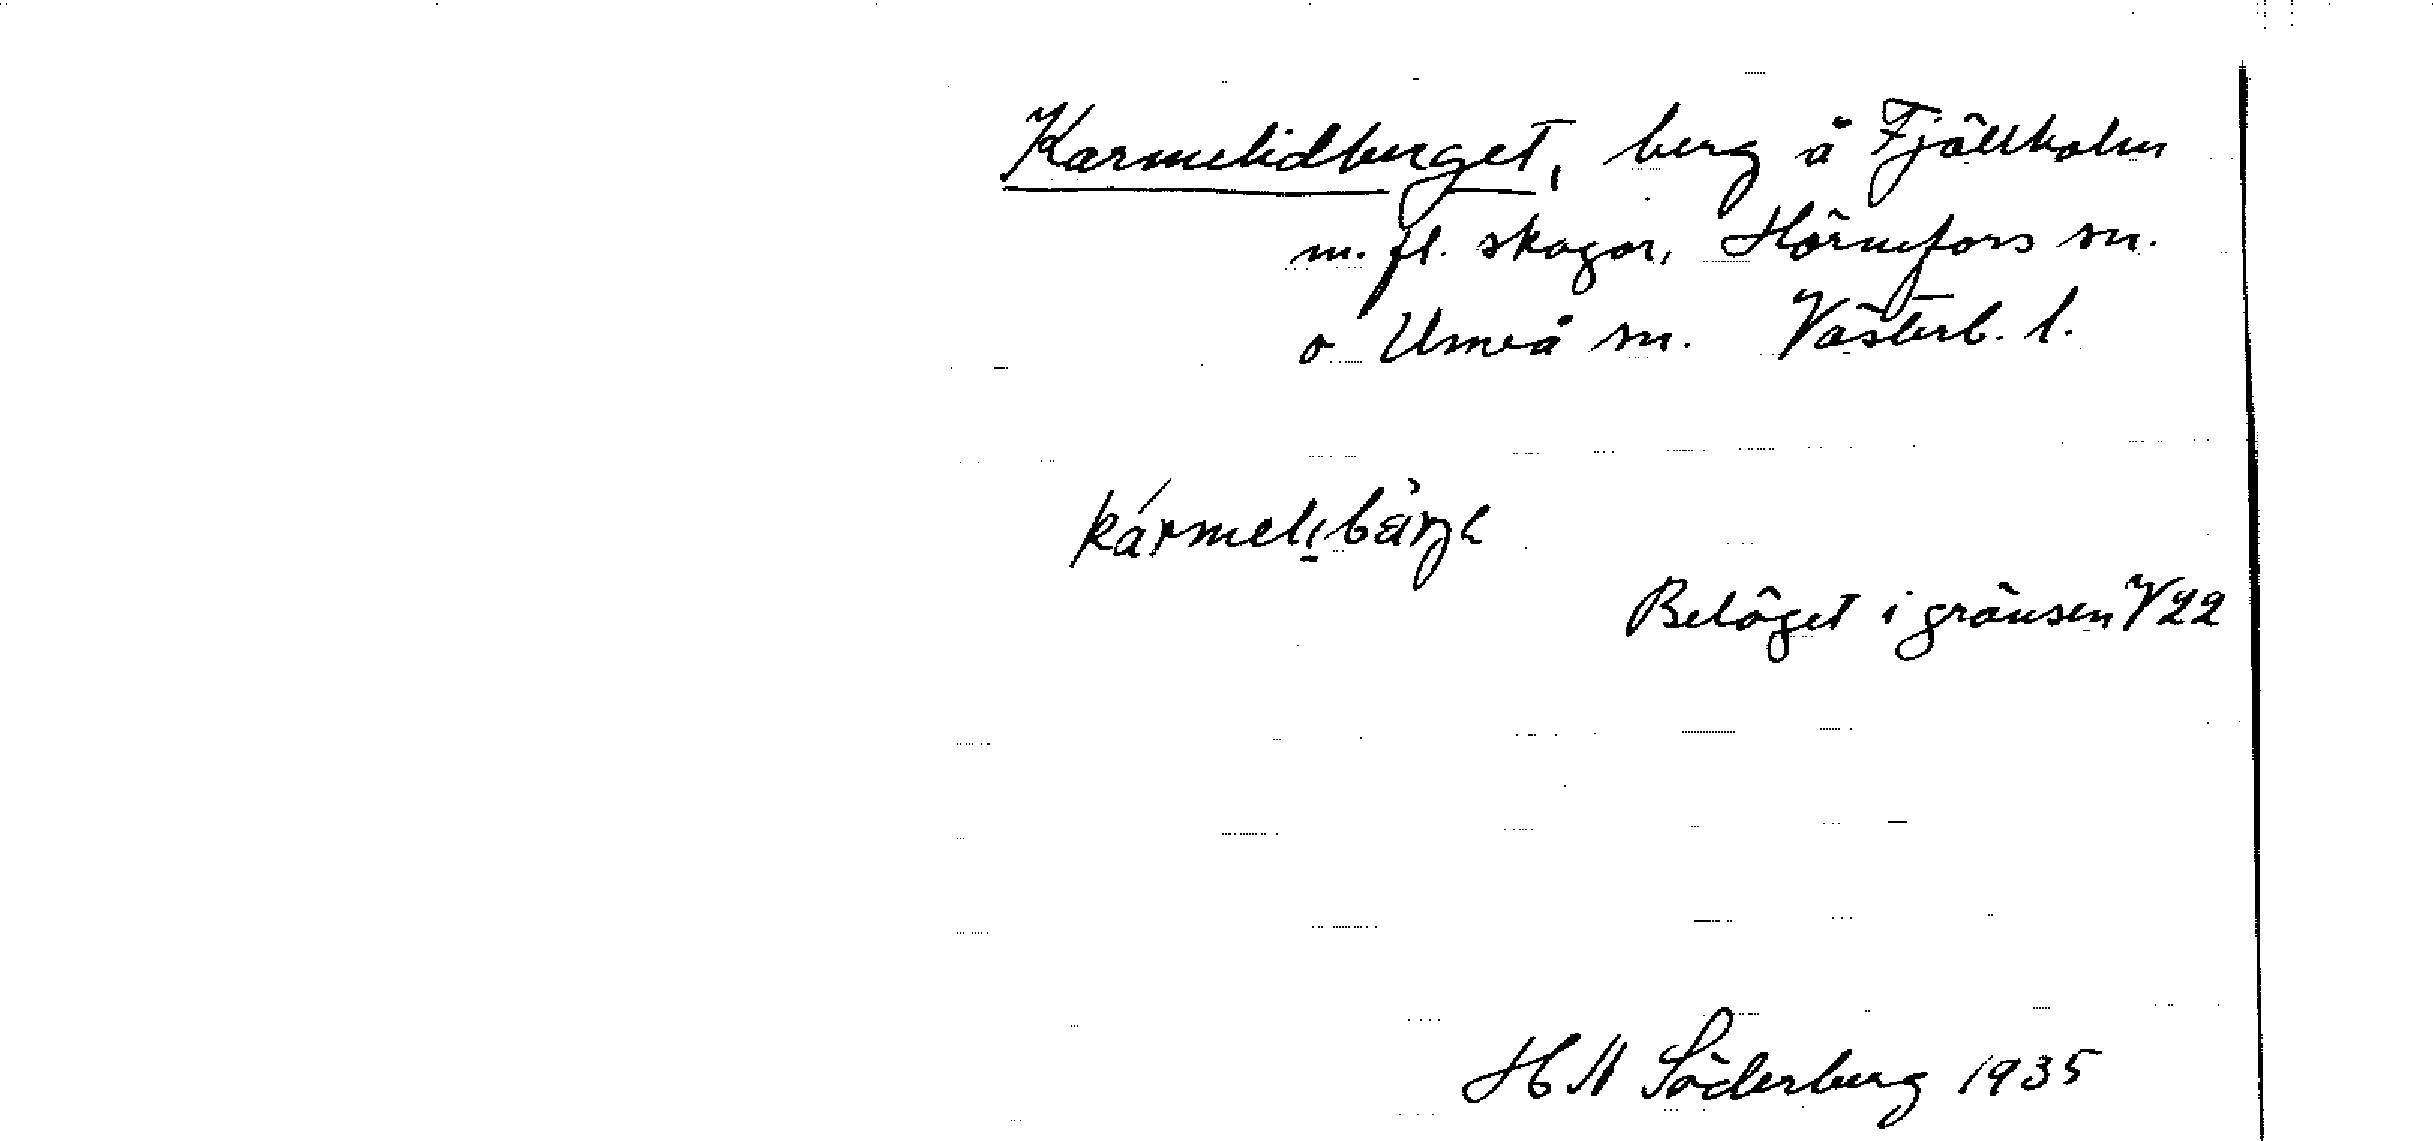 Karmelidberget, berg å Fjällholm
m. fl. skogar, Hörnefors sn.
o Umeå sn. Västerb. l.
Beläget i gränsen V22
H M Söderberg 1935